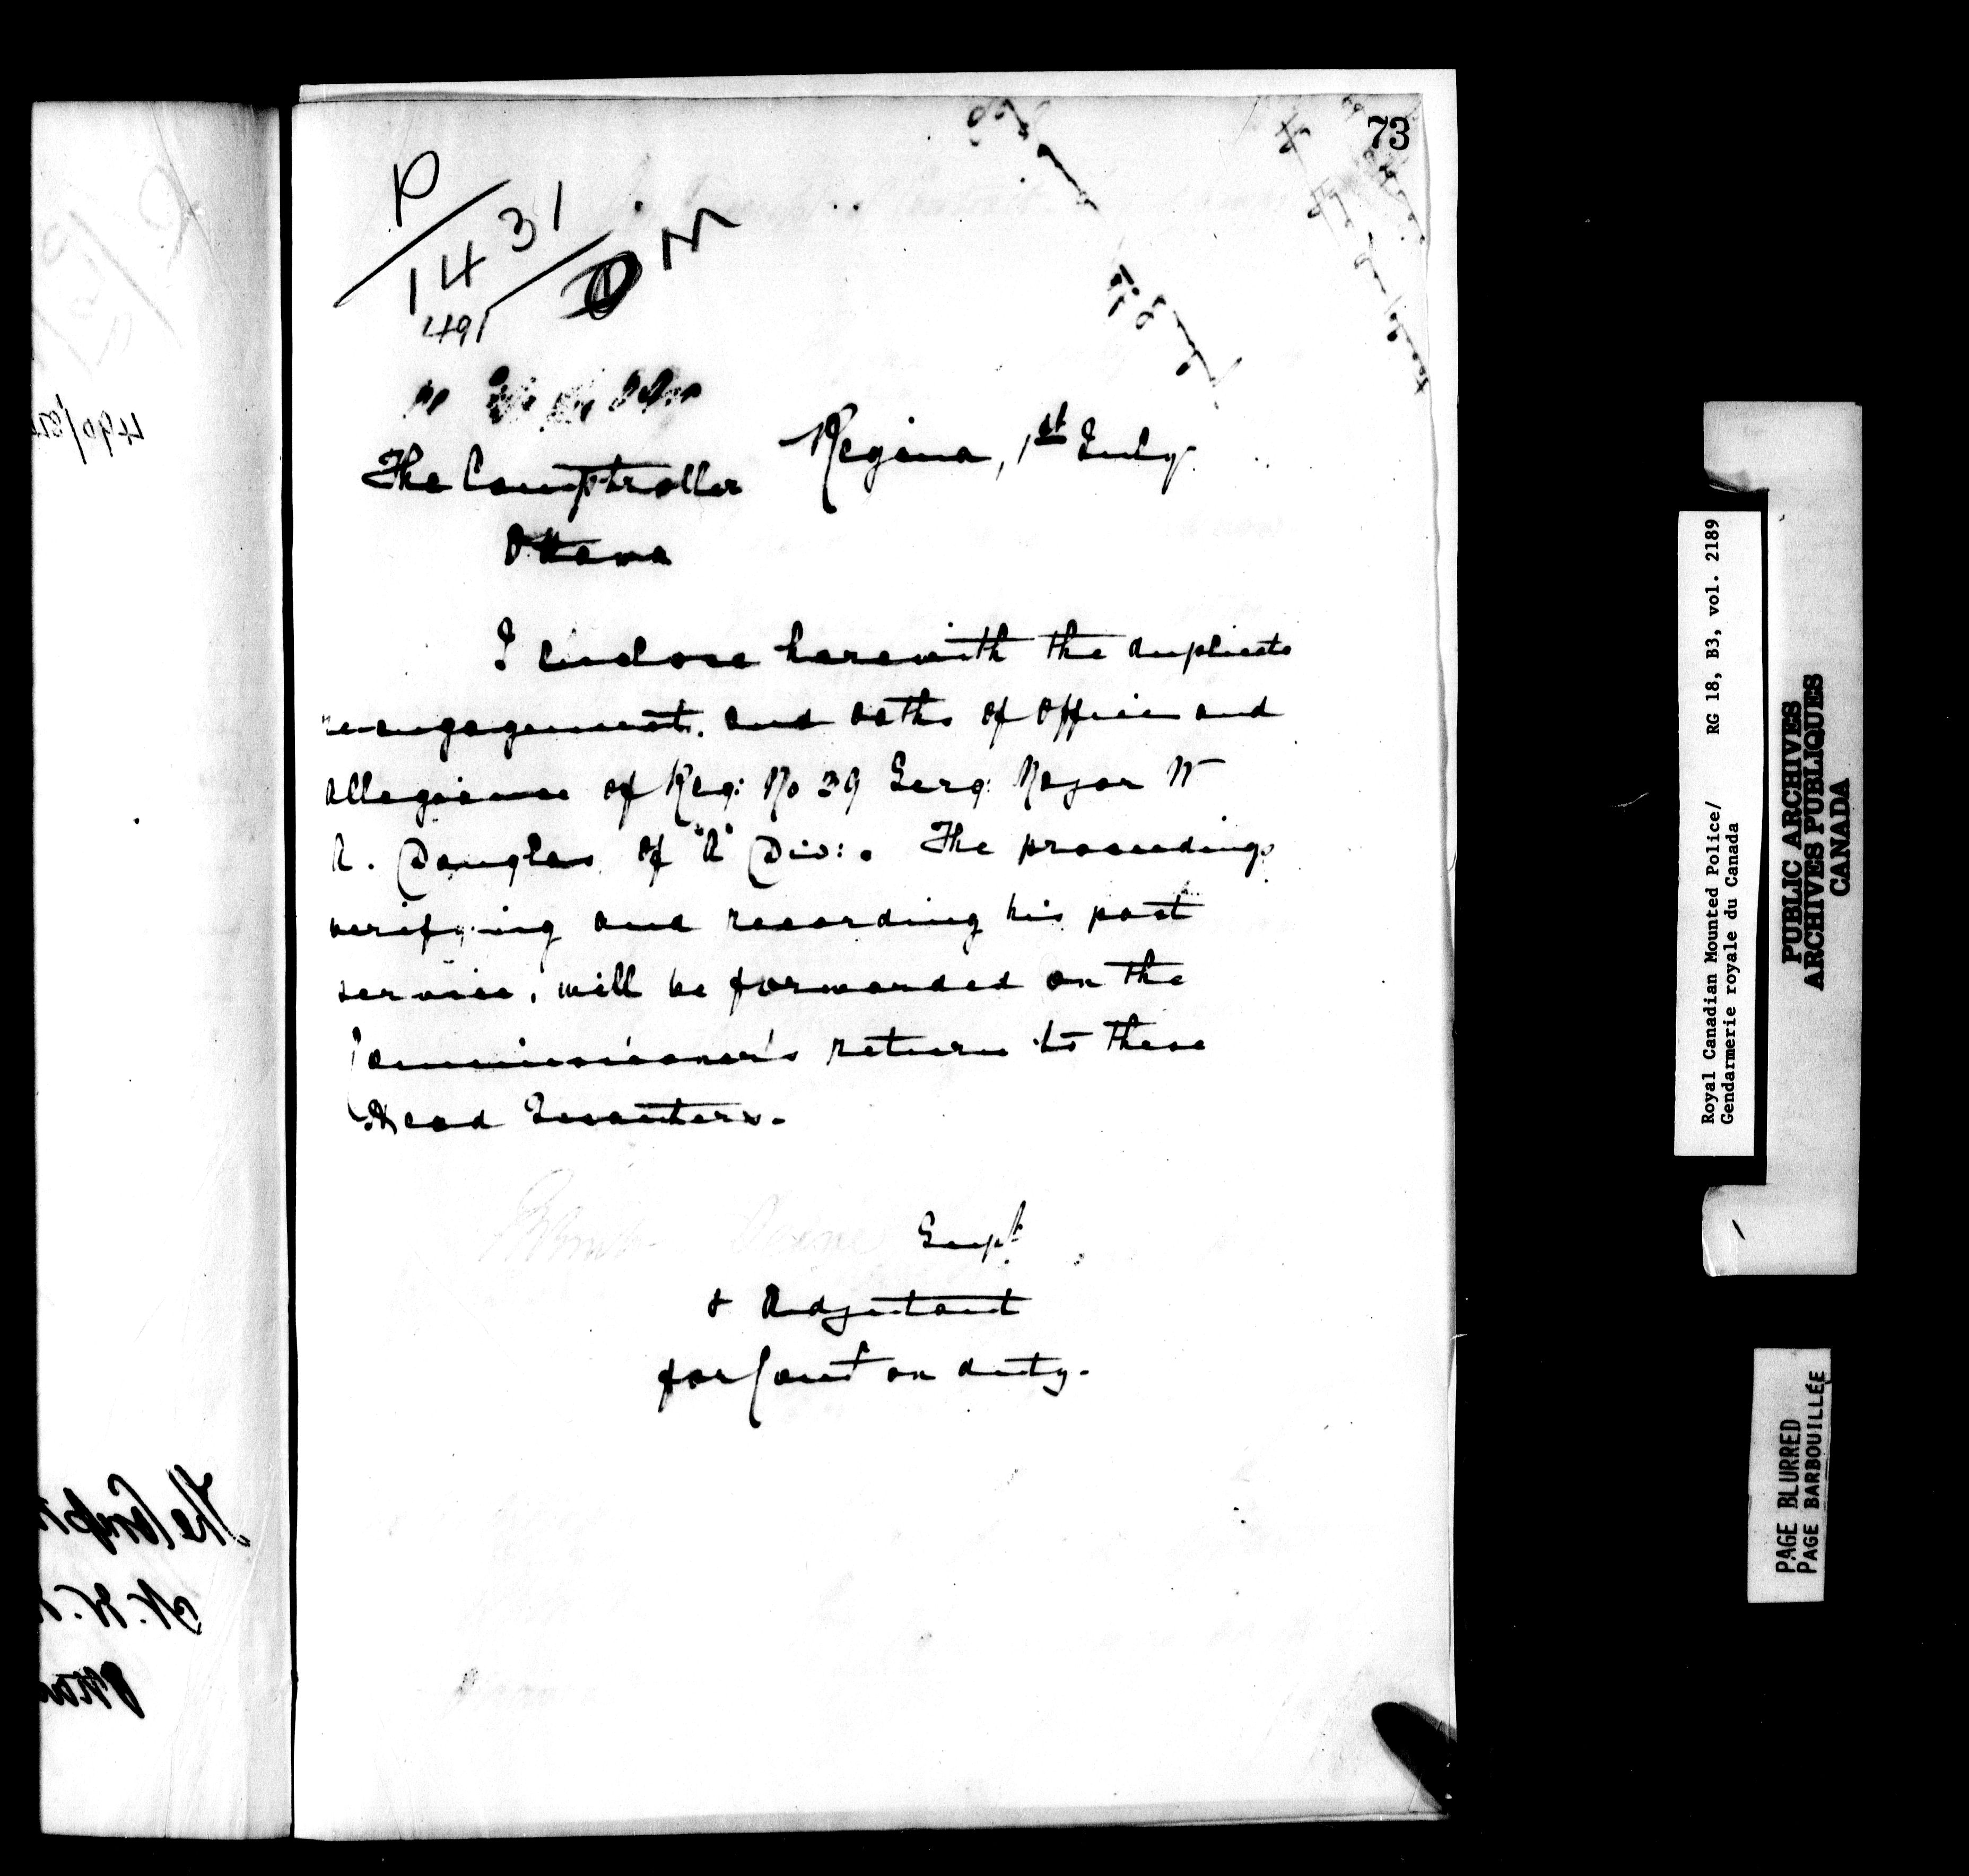 73
P
1431
491
M
Regina, 1st July
The Comptroller
Ottawa
I enclose herewith the duplicate
re-engagement, and oaths of office and
allegiance of Reg: No 39 Serg: Major W
A. Douglas of "A" Div:. The proceedings
verifying and recording his past
service, will be forwarded on the
Commissioner's return to these
Head Quarters.
Supt
& Adjutant
for Comr on duty.
Royal Canadian Mounted Police/ RG 18, B3, vol. 2189
Gendarmerie royale du Canada
PUBLIC ARCHIVES
ARCHIVES PUBLIQUES
CANADA
PAGE BLURRED
PAGE BARBOUILLÉE